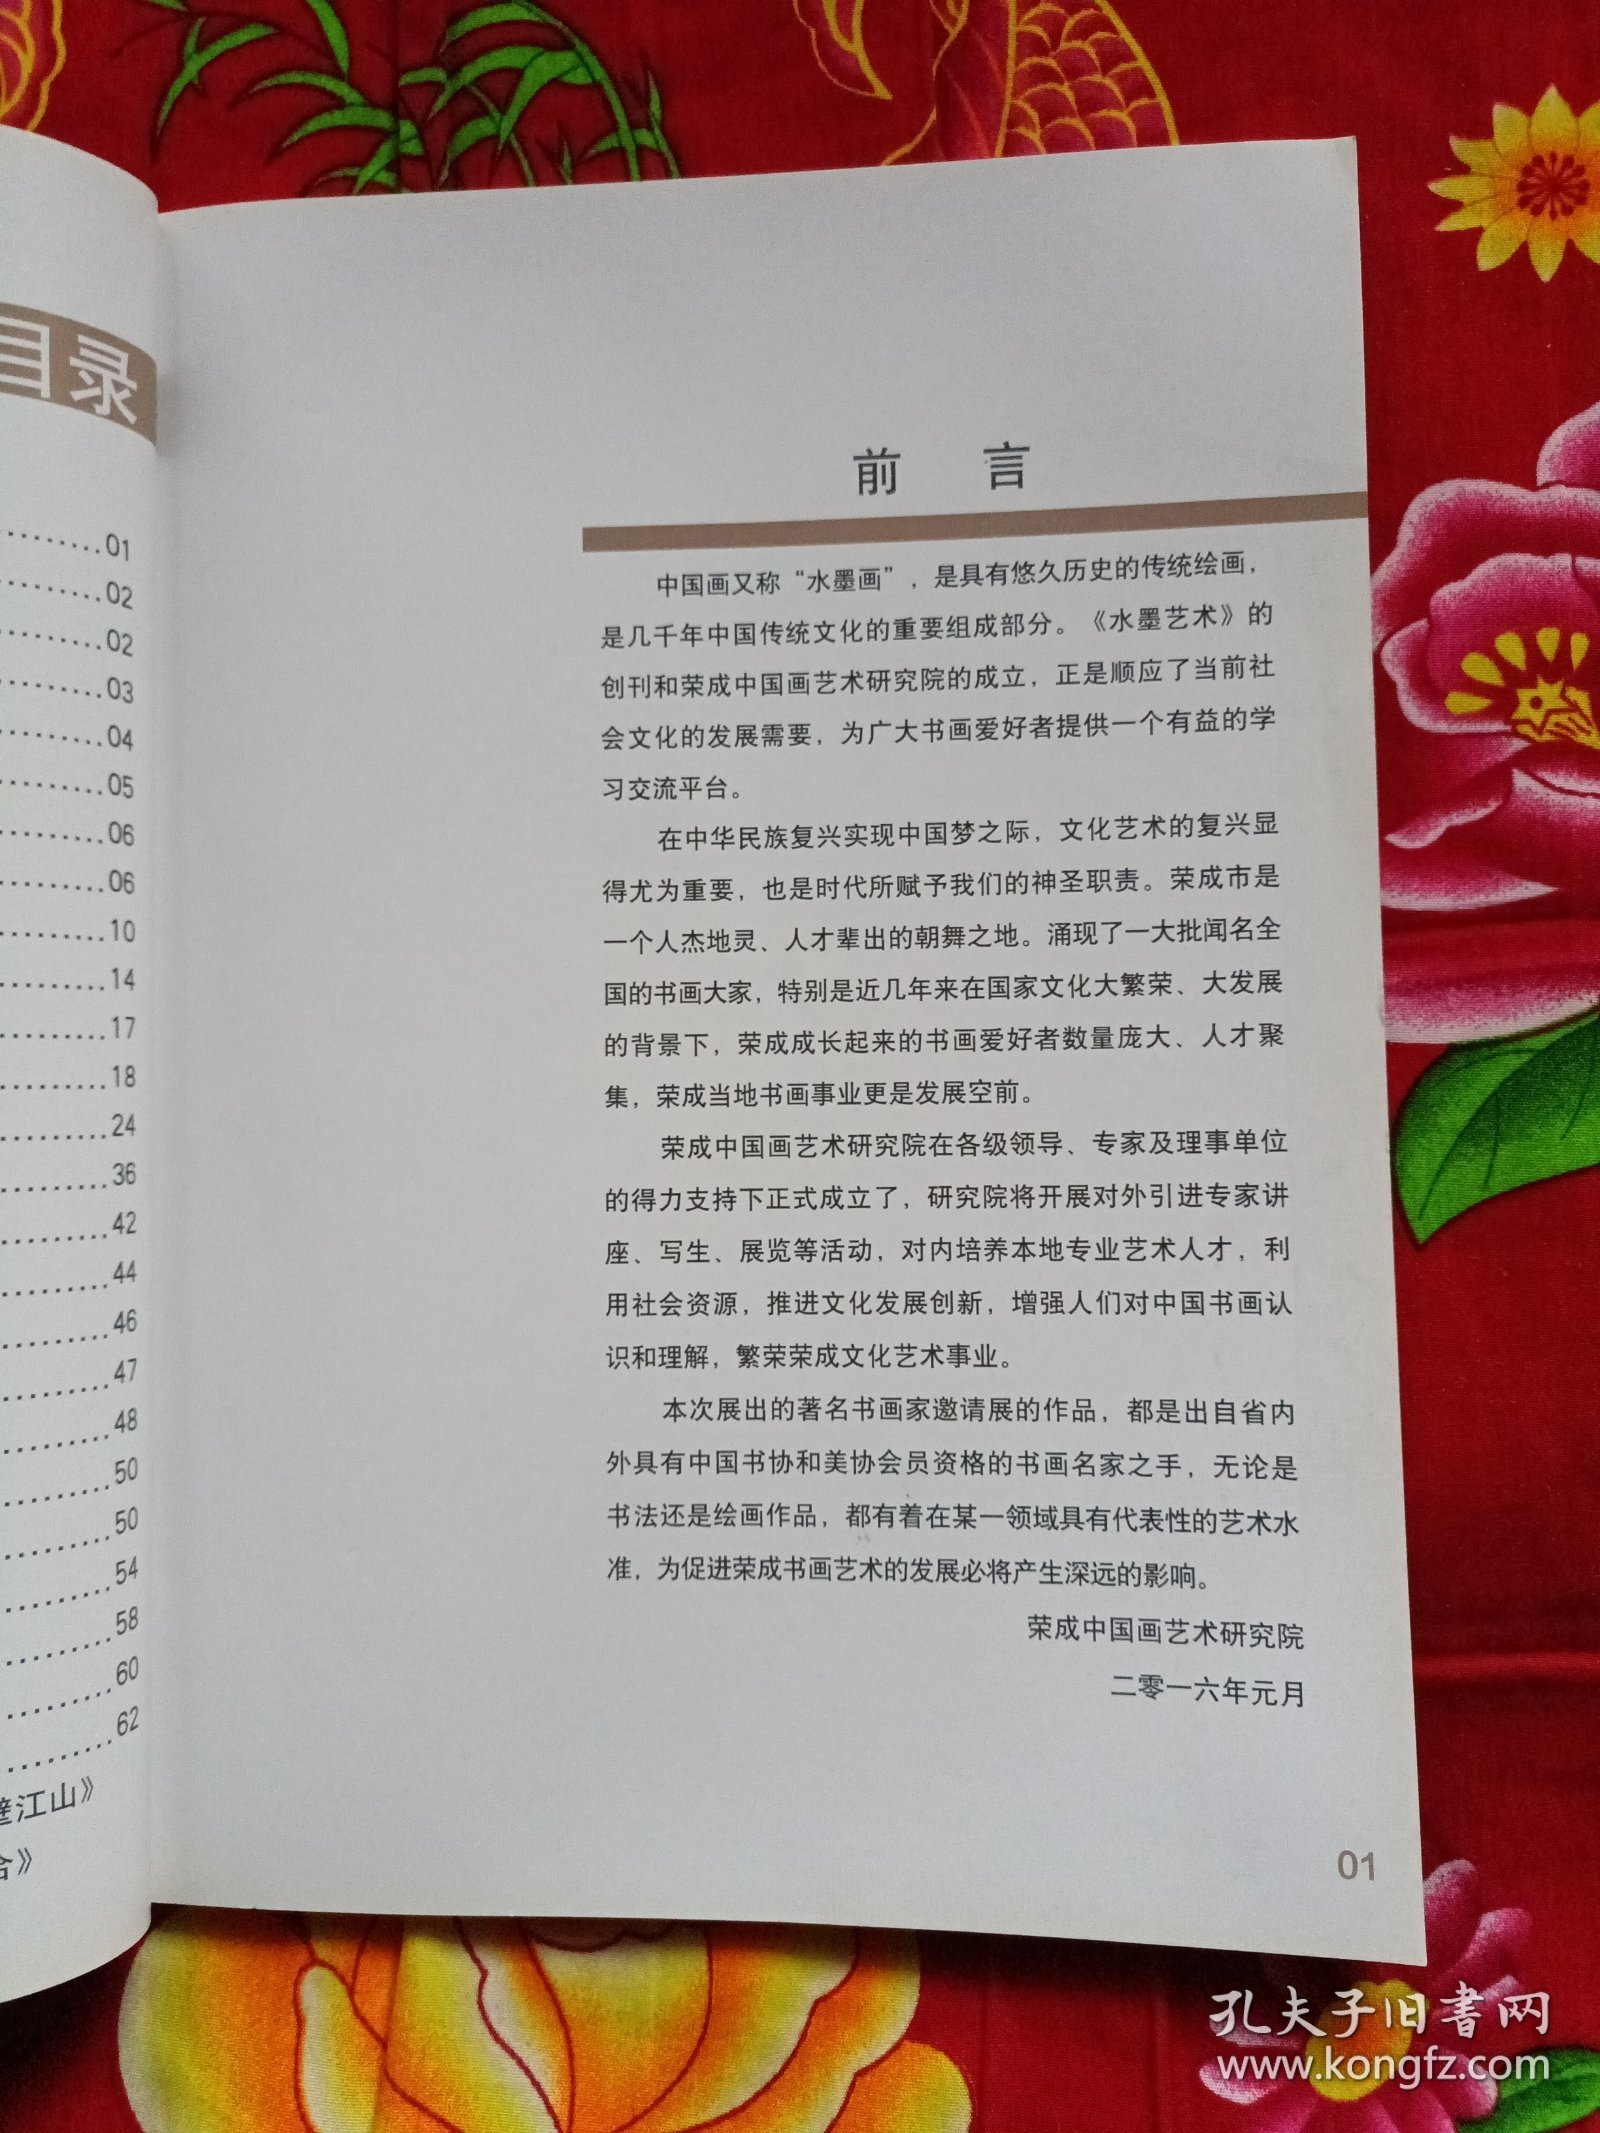 目录
01
02
02
03
04
05
06
06
10
14
17
18
24
36
42
44
46
47
48
50
50
54
58
60
62
江山》
》
前 言
中国画又称“水墨画”，是具有悠久历史的传统绘画，
是几千年中国传统文化的重要组成部分。《水墨艺术》的
创刊和荣成中国画艺术研究院的成立，正是顺应了当前社
会文化的发展需要，为广大书画爱好者提供一个有益的学
习交流平台。
在中华民族复兴实现中国梦之际，文化艺术的复兴显
得尤为重要，也是时代所赋予我们的神圣职责。荣成市是
一个人杰地灵、人才辈出的朝舞之地。涌现了一大批闻名全
国的书画大家，特别是近几年来在国家文化大繁荣、大发展
的背景下，荣成成长起来的书画爱好者数量庞大、人才聚
集，荣成当地书画事业更是发展空前。
荣成中国画艺术研究院在各级领导、专家及理事单位
的得力支持下正式成立了，研究院将开展对外引进专家讲
座、写生、展览等活动，对内培养本地专业艺术人才，利
用社会资源，推进文化发展创新，增强人们对中国书画认
识和理解，繁荣荣成文化艺术事业。
本次展出的著名书画家邀请展的作品，都是出自省内
外具有中国书协和美协会员资格的书画名家之手，无论是
书法还是绘画作品，都有着在某一领域具有代表性的艺术水
准，为促进荣成书画艺术的发展必将产生深远的影响。
荣成中国画艺术研究院
二零一六年元月
01
孔夫子旧书网
www.kongfz.com